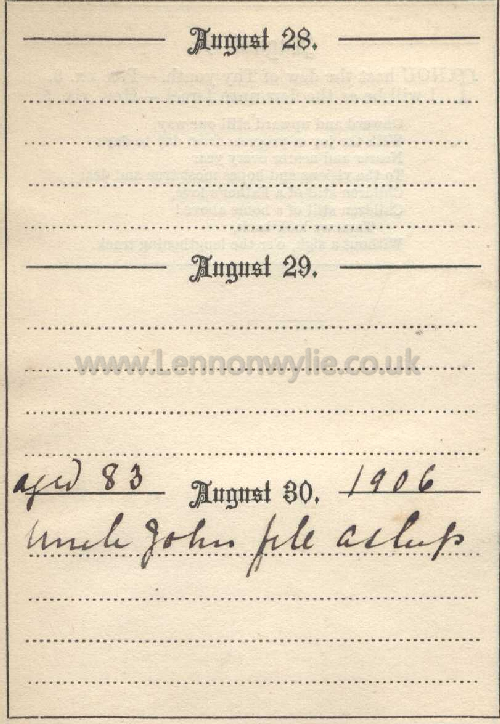 August 28.
August 29.
www.Lennonwylie.co.uk
aged 83 August 30. 1906
Uncle John fell asleep